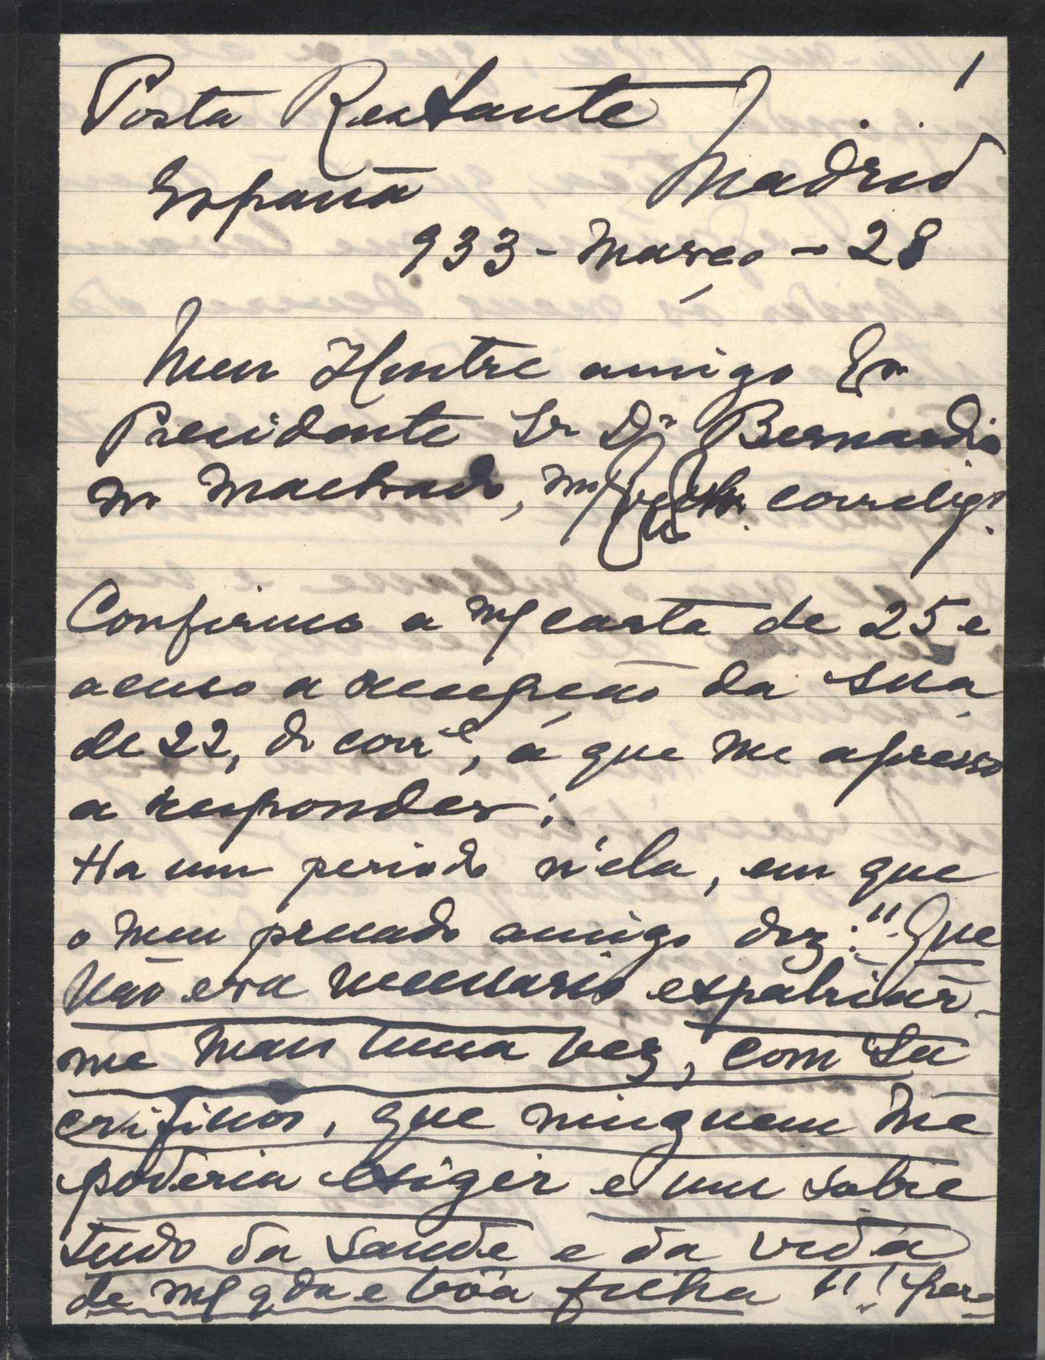 1
Posta Restante
España Madrid
933 - Março - 28
Meu Illustre amigo Ex
Presidente Sr Dr Bernardi
no Machado, correlig.
Confirmo a m/ carta de 25 e
acuso a recepção da sua
de 22, do corr.e, á que me apresso
a responder:
Ha um periodo n'ela, em que
o meu presado amigo diz: "Que
não era necessario expatriár-
me mais uma vez, com Sa
crificios, que ninguem me
poderia exigir e um sobre
tudo da saude e da vida
de m/ qda e bôa filha"! Pere